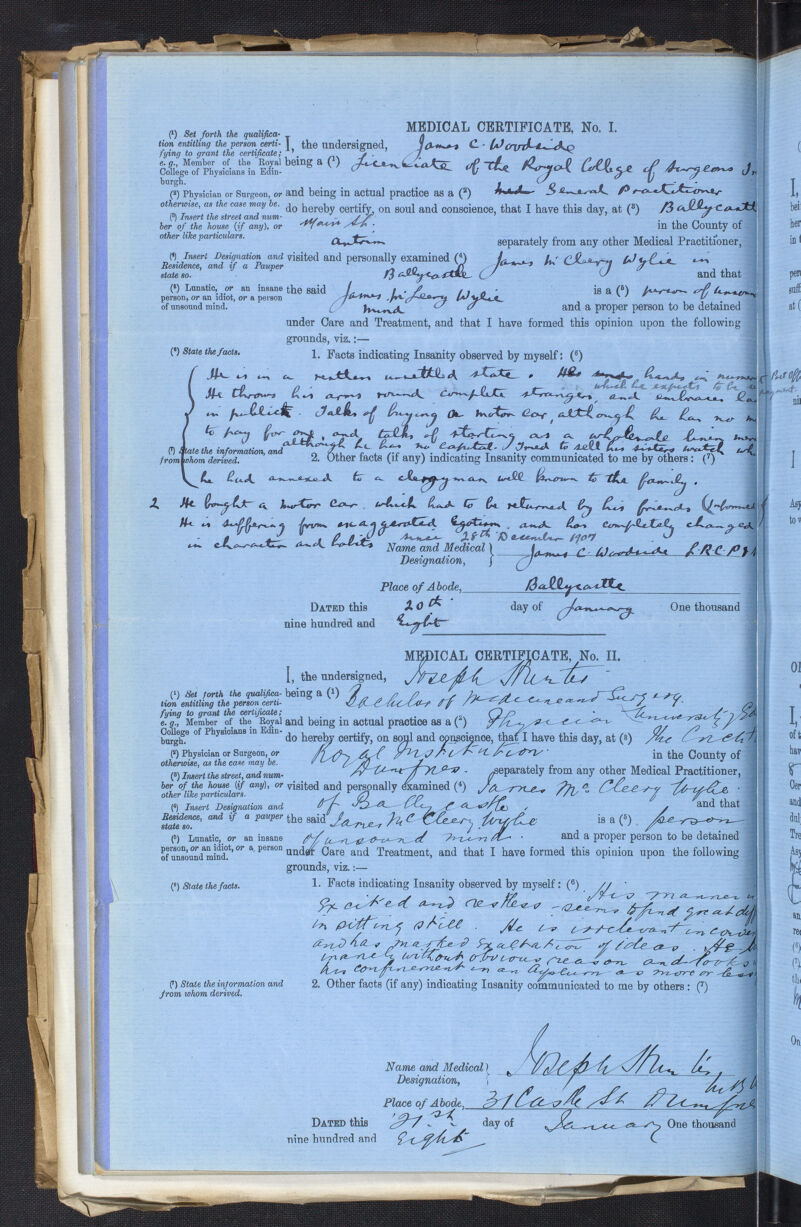 MEDICAL CERTIFICATE, No. I.
(¹) Set forth the qualifica-
tion entitling the person certi-
fying to grant the certificate;
e. g., Member of the Royal
College of Physicians in Edin-
burgh.
(²) Physician or Surgeon, or
otherwise, as the case may be.
(³) Insert the street and num-
ber of the house (if any), or
other like particulars.
(⁴) Insert Designation and
Residence, and if a Pauper
state so.
(⁵) Lunatic, or an insane
person, or an idiot, or a person
of unsound mind.
I, the undersigned, James C. Woodside
being a (¹) Licenciate of the Royal College of Surgeons
and being in actual practice as a (²) General Practitioner
do hereby certify, on soul and conscience, that I have this day, at (³) Ballycastle
Main St. in the County of
Antrim separately from any other Medical Practitioner,
visited and personally examined (⁴) James McCleery Wylie in
Ballycastle and that
the said James McCleery Wylie is a (⁵) person of unsound
mind and a proper person to be detained
under Care and Treatment, and that I have formed this opinion upon the following
grounds, viz. :—
(⁶) State the facts.
1. Facts indicating Insanity observed by myself: (⁶)
He is in a restless unsettled state. hands in
which he expects to be
He throws his arms round complete strangers, and embraces
in public. Talks of buying a motor car, although he has no
to pay for one, and talks of starting as a wholesale linen
although he has no capital. Tried to sell his sisters watch
(⁷) State the information, and
from whom derived.
2. Other facts (if any) indicating Insanity communicated to me by others: (⁷)
he had annexed to a clergyman well known to the family.
2 He bought a motor car which had to be returned by his friends
He is suffering from exaggerated Egotism and has completely changed
in character and habits since 28th December 1907
Name and Medical Designation, James C. Woodside L.R.C.P &
Place of Abode, Ballycastle
DATED this 20th day of January One thousand
nine hundred and Eight
MEDICAL CERTIFICATE, No. II.
(¹) Set forth the qualifica-
tion entitling the person certi-
fying to grant the certificate;
e. g., Member of the Royal
College of Physicians in Edin-
burgh.
(²) Physician or Surgeon, or
otherwise, as the case may be.
(³) Insert the street, and num-
ber of the house (if any), or
other like particulars.
(⁴) Insert Designation and
Residence, and if a pauper
state so.
(⁵) Lunatic, or an insane
person, or an idiot, or a person
of unsound mind.
I, the undersigned, Joseph Hunter
being a (¹) Bachelor of Medicine and Surgery.
University of
and being in actual practice as a (²) Physician
do hereby certify, on soul and conscience, that I have this day, at (³) The
Royal Institution in the County of
Dumfries. separately from any other Medical Practitioner,
visited and personally examined (⁴) James McCleery Wylie
of Ballycastle and that
the said James McCleery Wylie is a (⁵) person
of unsound mind and a proper person to be detained
under Care and Treatment, and that I have formed this opinion upon the following
grounds, viz. :—
(⁶) State the facts.
1. Facts indicating Insanity observed by myself: (⁶) His manner is
excited and restless - seems to find great
in sitting still. He is irrelevant in
and has marked exaltation of ideas. He
inanely without obvious reason and looks
his confinement in an Asylum as more or less
(⁷) State the information and
from whom derived.
2. Other facts (if any) indicating Insanity communicated to me by others: (⁷)
Name and Medical Designation, Joseph Hunter
Place of Abode, 31 Castle St Dumfries
DATED this 21st day of January One thousand
nine hundred and Eight